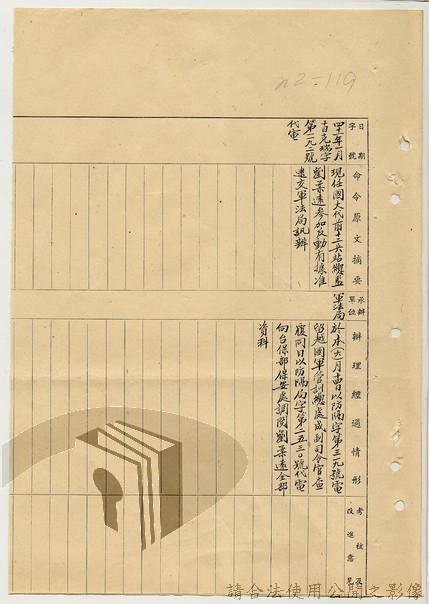 n2=119
日期
字號
命令原文摘要
承辦單位
辦理經過情形
考核及改進意見
四十一年一月
吉克瑞字
第一九二號
代電
現任國大代前十二兵站總監
劉業遠參加反動有據准
逮交軍法局訊辦
軍法局
於本(六)月 日以防隔字第三一九號電
留越國軍管訓總處成副司令官查
覆同日以防隔局字第二五三0號代電
向台保部保安處調閱劉業遠全部
資料
請合法使用公開之影像